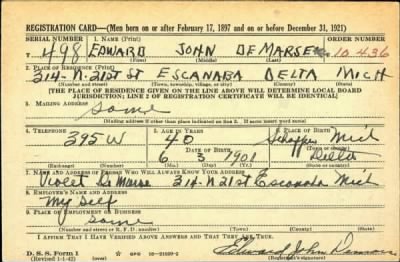 REGISTRATION CARD—(Men born on or after February 17, 1897 and on or before December 31, 1921)
SERIAL NUMBER 1. NAME (Print) ORDER NUMBER
V 498 EDWARD JOHN DEMARSE 10,436
(First) (Middle) (Last)
2. PLACE OF RESIDENCE (Print)
314-N-21ST ST ESCANABA DELTA MICH
(Number and street) (Town, township, village, or city) (County) (State)
[THE PLACE OF RESIDENCE GIVEN ON THE LINE ABOVE WILL DETERMINE LOCAL BOARD
JURISDICTION; LINE 2 OF REGISTRATION CERTIFICATE WILL BE IDENTICAL]
3. MAILING ADDRESS
Same
(Mailing address if other than place indicated on line 2. If same insert word same)
4. TELEPHONE 5. AGE IN YEARS 6. PLACE OF BIRTH
395W 40 Schaffer Mich
DATE OF BIRTH (Town or county)
6 3 1901 Delta
(Exchange) (Number) (Mo.) (Day) (Yr.) (State or country)
7. NAME AND ADDRESS OF PERSON WHO WILL ALWAYS KNOW YOUR ADDRESS
Violet DeMarse 314-N 21st Escanaba Mich
8. EMPLOYER'S NAME AND ADDRESS
My Self
9. PLACE OF EMPLOYMENT OR BUSINESS
same
(Number and street or R. F. D. number) (Town) (County) (State)
I AFFIRM THAT I HAVE VERIFIED ABOVE ANSWERS AND THAT THEY ARE TRUE.
D. S. S. Form 1
(Revised 1-1-42) (over) GPO 16-21630-2 Edward John Demarse